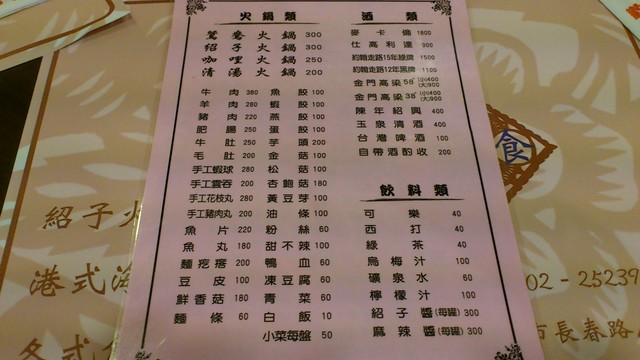 火鍋類
鴛鴦火鍋 300
紹子火鍋 300
咖哩火鍋 250
清湯火鍋 200
牛肉 380 魚餃 100
羊肉 280 蝦餃 100
豬肉 220 燕餃 100
肥腸 250 蛋餃 100
牛肚 250 芋頭 200
毛肚 200 金菇 100
手工蝦球 280 松菇 100
手工雲吞 200 杏鮑菇 180
手工花枝丸 280 黃豆芽 100
手工豬肉丸 200 油條 100
魚片 220 粉絲 60
魚丸 180 甜不辣 100
麵疙瘩 200 鴨血 60
豆皮 100 凍豆腐 60
鮮香菇 180 青菜 60
麵條 60 白飯 10
小菜每盤 50
酒類
麥卡倫 1800
仕高利達 900
約翰走路15年綠牌 1500
約翰走路12年黑牌 1100
金門高梁58° (小)400 (大)900
金門高梁38° (小)400 (大)900
陳年紹興 400
玉泉清酒 400
台灣啤酒 100
自帶酒酌收 200
飲料類
可樂 40
西打 40
綠茶 40
烏梅汁 100
礦泉水 60
檸檬汁 100
紹子醬(每罐) 300
麻辣醬(每罐) 300
食
紹子火
港式海
各式
02-25239
市長春路